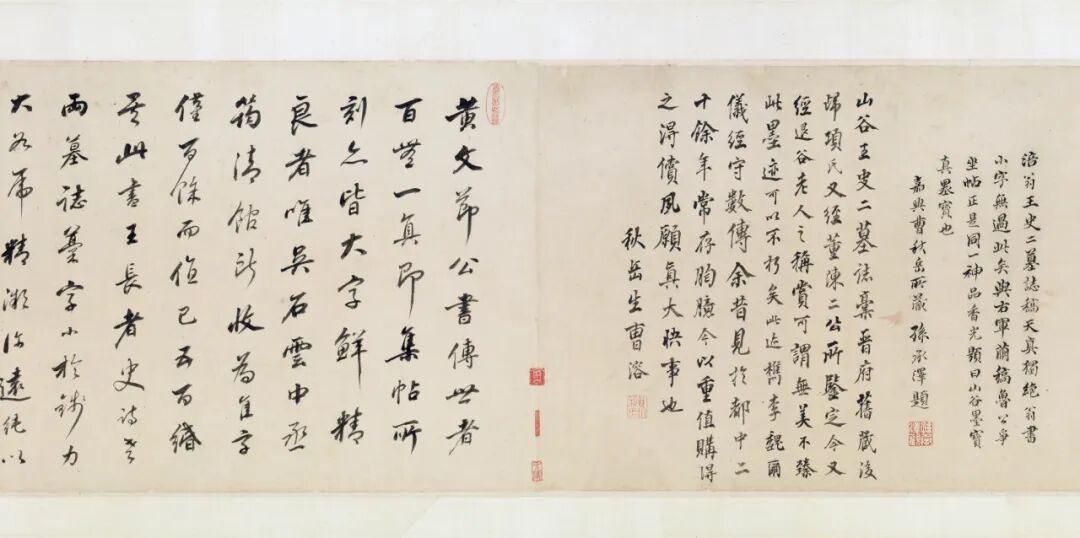 涪翁王史二墓誌稿天真獨絕翁書
小字無過此矣與右軍蘭稿魯公爭
坐帖正是同一神品香光題曰山谷墨寶
真墨寶也
嘉興曹秋岳所藏 孫承澤題
山谷王史二墓誌稾晉府舊藏後
歸項氏又經董陳二公所鑒定今又
經退谷老人之稱賞可謂無美不臻
此墨迹可以不朽矣此迹檇李魏爾
儀經守數傳余昔見於都中二
十餘年常存胸臆今以重值購得
之得償夙願真大快事也
秋岳生曹溶
黃文節公書傳世者
百無一真即集帖所
刻亦皆大字鮮精
良者唯吳石雲中丞
筠清館所收為佳字
僅百餘而值已五百緡
矣此書王長者史詩老
兩墓誌藁字小於錢力
大於虎精瀨淵遠純以